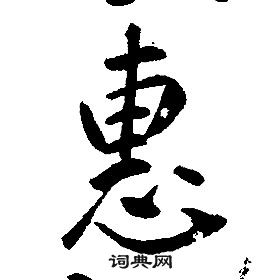 惠
词典网